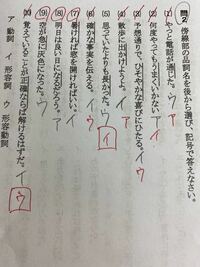 問2 傍線部の品詞名を後から選び、記号で答えなさい。
(1) やっと電話が通じた。 ウ ア
(2) 何度やってもうまくいかない。 ア イ
(3) 予想通りで、ひそやかな喜びにひたる。 イ ウ
(4) 散歩に出かけようよ。 イ ア
(5) 思っていたよりも長かった。 ウ イ
(6) 確かな事実を伝える。 イ ウ
(7) 暑ければ窓を開ければいい。 イ
(8) 明日は良い日になるだろう。 ア
(9) 空が急に灰色になった。 ウ
(10) 覚えていることが正確ならば解けるはずだ。 イ ウ
ア 動詞 イ 形容詞 ウ 形容動詞